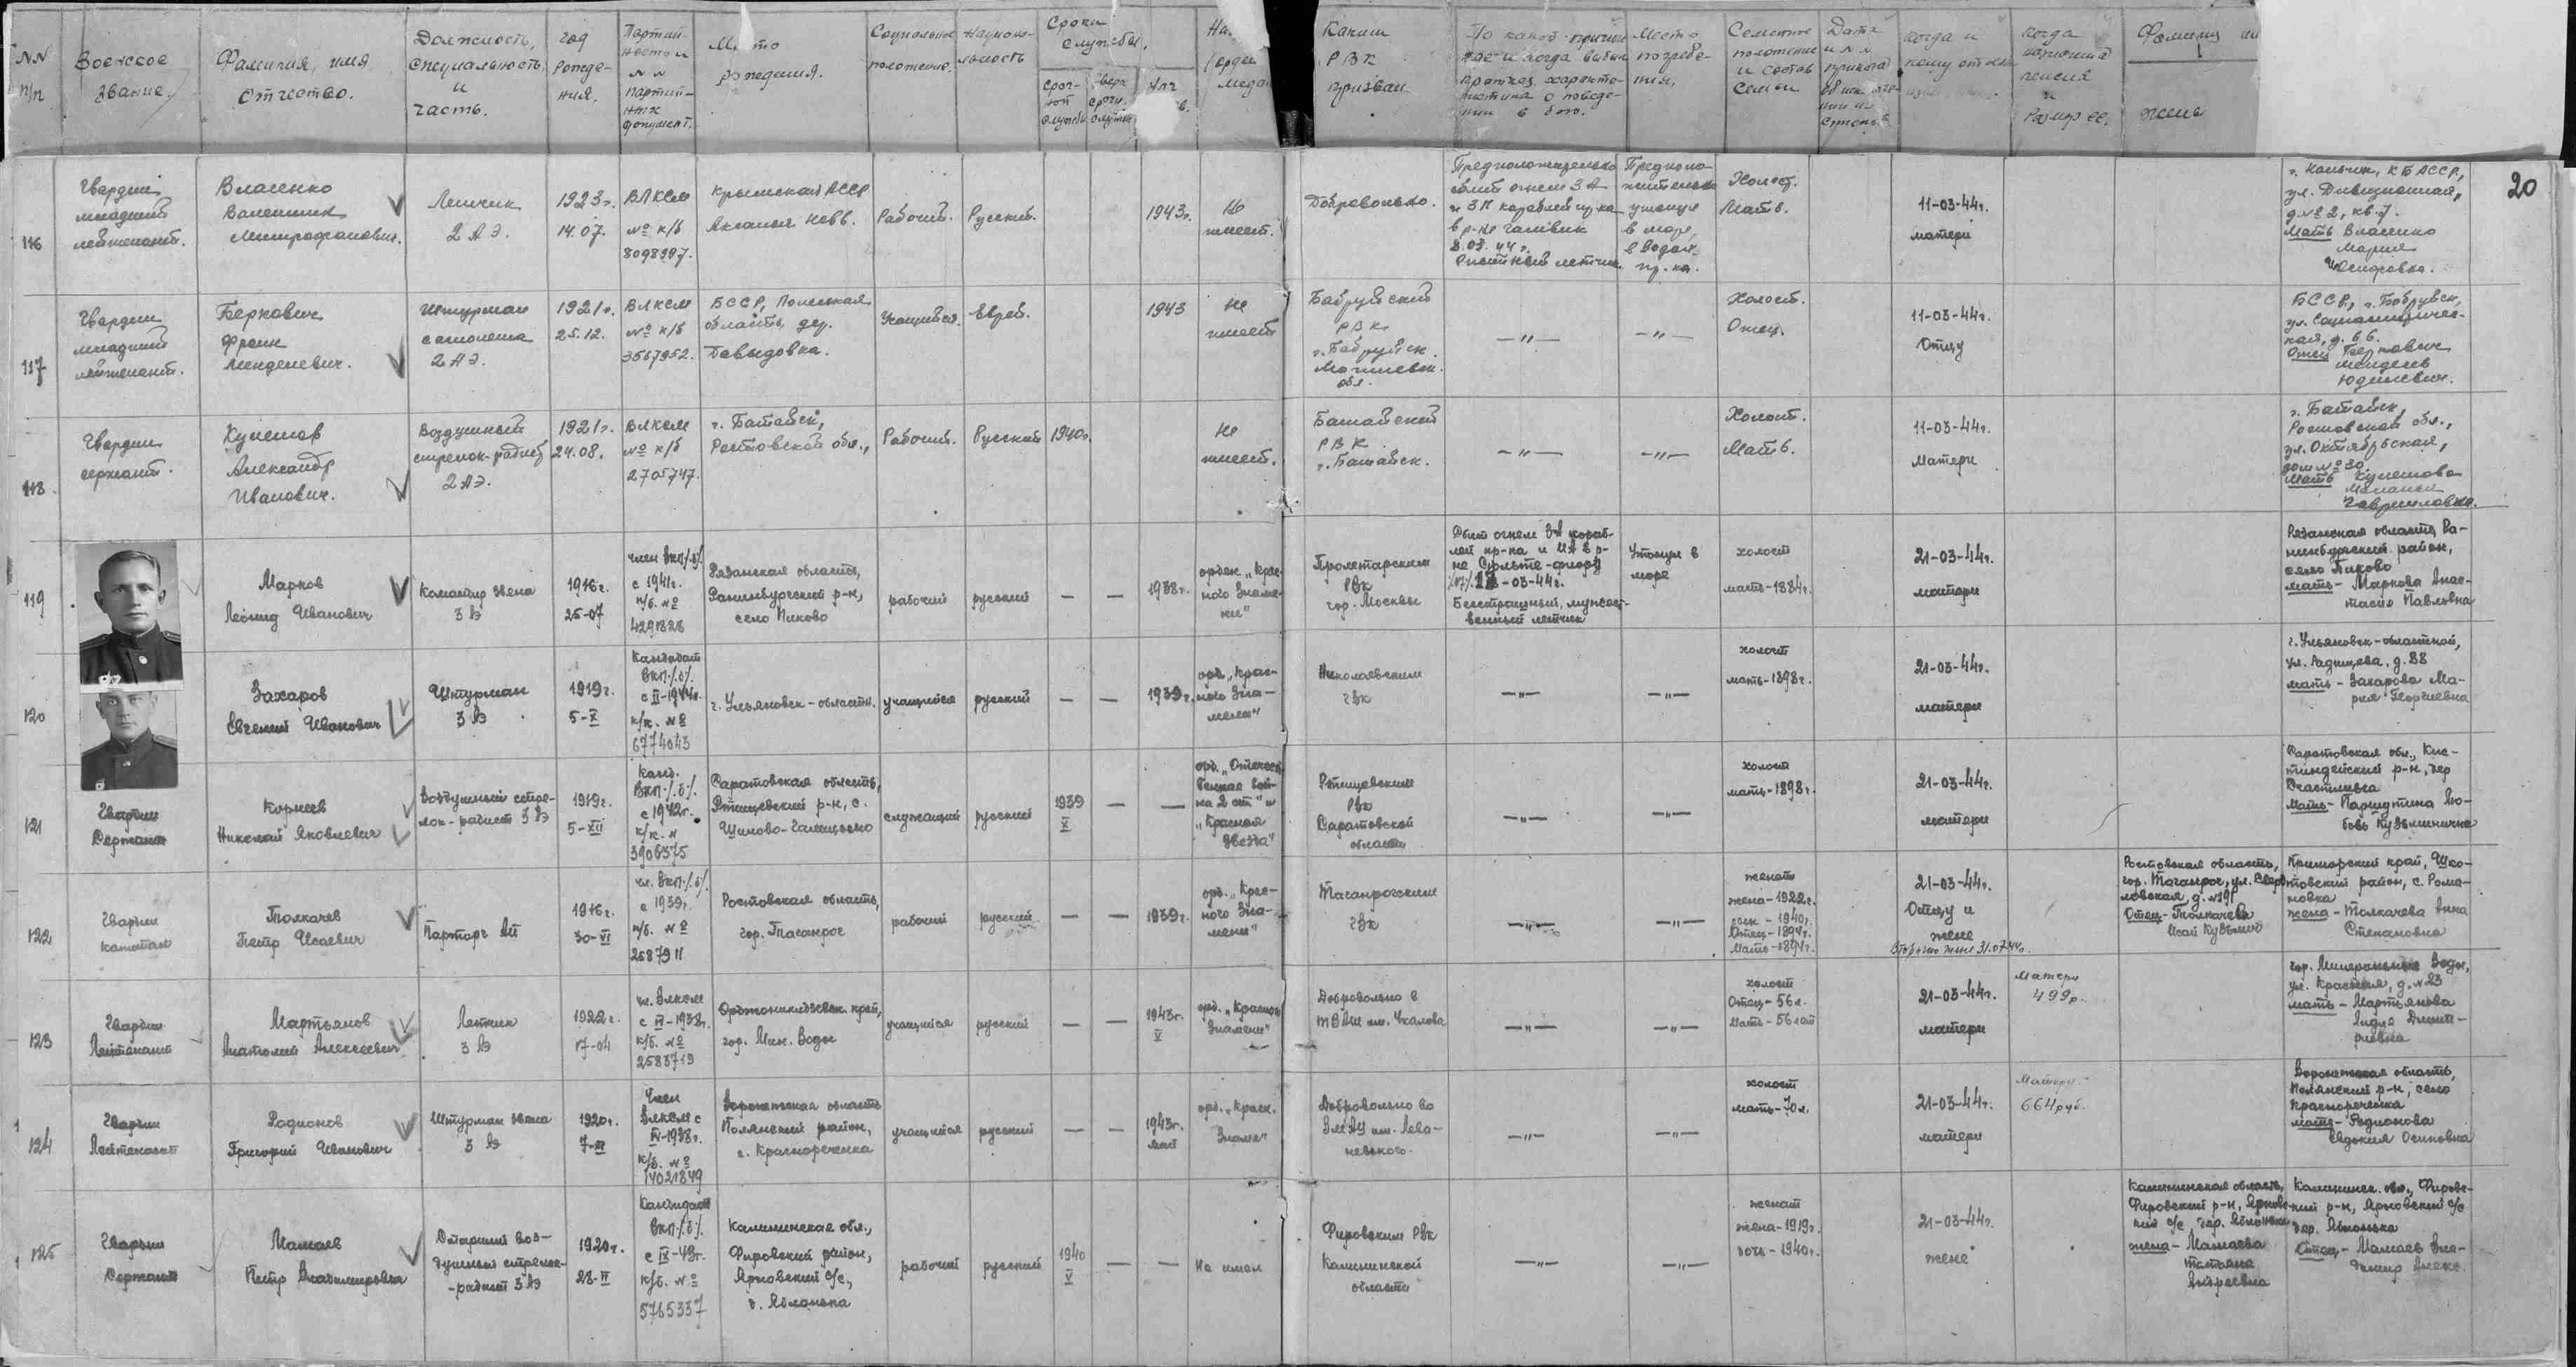 NN п/п
Воинское звание.
Фамилия, имя отчество.
Должность, специальность и часть.
год рождения.
Партийность и NN партийных документ.
Место рождения.
Социальное положение.
Националь­ность
Сроки службы.
сроч­ной службы
сверх срочн. службы
Каким РВК призван
По какой причине где и когда выбыл краткая характеристика о поведении в бою.
Место погребения.
Семейное положение и состав семьи
Дата и NN приказа
Когда и кому
Когда назначена пенсия и размер ее.
Фамилия
жены
20
116
Гвардии
младший
лейтенант.
Власенко
Валентин
Митрофанович.
Летчик
2 АЭ.
1923г.
14.07.
ВЛКСМ
№ к/б
8098997.
Крымская АССР
Аскания Новь.
Рабочий.
Русский.
1943г.
Не
имеет.
Добровольно.
Предположительно
сбит огнем ЗА
и ЗП кораблей пр-ка
в р-не Гамвик
8.03.44г.
Предположительно
утонул
в море,
в водах
пр-ка.
Холост.
Мать.
11-03-44г.
матери
г. Нальчик, КБАССР,
ул. Дивизионная,
д. №2, кв. 7.
Мать Власенко
Мария
117
Гвардии
младший
лейтенант.
Беркович
Фроим
Менделевич.
Штурман
самолета
2 АЭ.
1921г.
25.12.
ВЛКСМ
№ к/б
3567952.
БССР, Полесская
область, дер.
Давыдовка.
Учащийся.
Еврей.
1943
Не
имеет
Бобруйский
РВК
г. Бобруйск.
Могилевск.
обл.
—"—
—"—
Холост.
Отец.
11-03-44г.
Отцу
БССР, г. Бобруйск,
ул. Социалистичес-
кая, д. 66.
Отец Беркович
Мендель
Юделевич.
118
Гвардии
сержант.
Кулешов
Александр
Иванович.
Воздушный
стрелок-радист
2 АЭ.
1921г.
24.08.
ВЛКСМ
№ к/б
2705747.
г. Батайск,
Ростовской обл.,
Рабочий.
Русский
1940г.
Не
имеет.
Батайский
РВК
г. Батайск.
—"—
—"—
Холост.
Мать.
11-03-44г.
Матери
г. Батайск,
Ростовской обл.,
ул. Октябрьская,
дом №30.
Мать Кулешова
Маланья
Гавриловна.
119
Марков
Леонид Иванович
Командир звена
3 АЭ
1916г.
25-07
член ВКП/б/
с 1941г.
п/б. №
4291828
Рязанская область,
Раненбургский р-н,
село Пиково
рабочий
русский
—
—
1938г.
орден „Крас-
ного Знаме-
ни"
Пролетарским
РВК
гор. Москвы
Сбит огнем ЗА кораб-
лей пр-ка и ИА в р-
не
-03-44г.
Бесстрашный, мужест-
венный летчик
Утонул в
море
холост
мать-1884г.
21-03-44г.
матери
Рязанская область, Ра-
ненбургский район,
село Пиково
мать - Маркова Анас-
тасия Павловна
120
Захаров
Евгений Иванович
Штурман
3 АЭ
1919г.
5-X
Кандидат
ВКП/б/
к/к. №
6774043
г. Ульяновск-областн.
учащийся
русский
—
—
1939г.
орд. „Крас-
ного Зна-
мени"
Николаевским
ГВК
—"—
—"—
холост
мать-1898г.
21-03-44г.
матери
г. Ульяновск-областной,
ул. Радищева, д. 88
мать - Захарова Ма-
рия Георгиевна
121
Гвардии
Сержант
Корнеев
Николай Яковлевич
Воздушный стре-
лок-радист 3 АЭ
1919г.
5-XII
Канд.
ВКП/б/
с 1942г.
к/к. №
3906375
Саратовская область,
Ртищевский р-н, с.
Шилово-Галицыно
служащий
русский
1939
X
—
—
орд. „Отечест-
венная вой-
на 2 ст" и
„Красная
Звезда"
Ртищевским
РВК
Саратовской
области
—"—
—"—
холост
мать-1898г.
21-03-44г.
матери
Саратовская обл., Кис-
тендейский р-н, дер
Счастливка
Мать- Лю-
бовь Кузьминична
122
Гвардии
капитан
Толкачев
Петр Исаевич
Парторг АП
1916г.
30-VI
чл. ВКП/б/
с 1939г.
п/б. №
2587911
Ростовская область,
гор. Таганрог
рабочий
русский
—
—
1939г.
орд. „Крас-
ного Зна-
мени"
Таганрогским
ГВК
—"—
—"—
женат
жена-1922г.
сын - 1940г.
Отец-1894г.
Мать-1894г.
21-03-44г.
Отцу и
жене
Вторично жене 31.07.44г.
Ростовская область,
гор. Таганрог, ул. Сверд-
ловская, д. №191
Отец - Толкачева
Исай Кузьмич
Приморский край, Шко-
товский район, с. Рома-
новка
жена - Толкачева Анна
Степановна
123
Гвардии
Лейтенант
Мартьянов
Анатолий Алексеевич
Летчик
3 АЭ
1922г.
17-04
чл. ВЛКСМ
с VI-1938г.
к/б. №
2583719
Орджоникидзевск. край,
гор. Мин. Воды
учащийся
русский
—
—
1943г.
V
орд. „Красное
Знамени"
Добровольно в
ТВАШ им. Чкалова
—"—
—"—
холост
Отец-56 л.
Мать-56 лет
21-03-44г.
матери
Матери
499р.
гор. Минеральные Воды,
ул. Красная, д. №23
мать - Мартьянова
Лидия Дмит-
риевна
124
Гвардии
Лейтенант
Родионов
Григорий Иванович
Штурман звена
3 АЭ
1920г.
Член
ВЛКСМ с
IV-1938г.
к/б. №
14021849
Воронежская область
Полянский район,
с. Краснореченка
учащийся
русский
—
—
1943г.
май
орд. „Красн.
Знамя"
Добровольно во
ВМАУ им. Лева-
невского.
—"—
—"—
холост
мать-70 л.
21-03-44г.
матери
Матери
664 руб.
Воронежская область,
Полянский р-н, село
Краснореченка
мать- Родионова
Евдокия Осиповна
125
Гвардии
Сержант
Мамаев
Петр Владимирович
Старший воз-
душный стрелок-
-радист 3 АЭ
1920г.
28-II
Кандидат
ВКП/б/
с IX-43г.
к/б. №
5765337
Калининская обл.,
Фировский район,
Ярновский с/с.,
д. Яблонька
рабочий
русский
1940
V
—
—
Не имел
Фировским РВК
Калининской
области
—"—
—"—
женат
жена-1919г.
дочь-1940г.
21-03-44г.
жене
Калининская область,
Фировский р-н, Ярновс-
кий с/с дер. Яблонька
жена - Мамаева
Татьяна
Андреевна
Калининск. обл., Фировс-
кий р-н, Ярновский с/с
дер. Яблонька
Отец - Мамаев Вла-
димир Алекс.